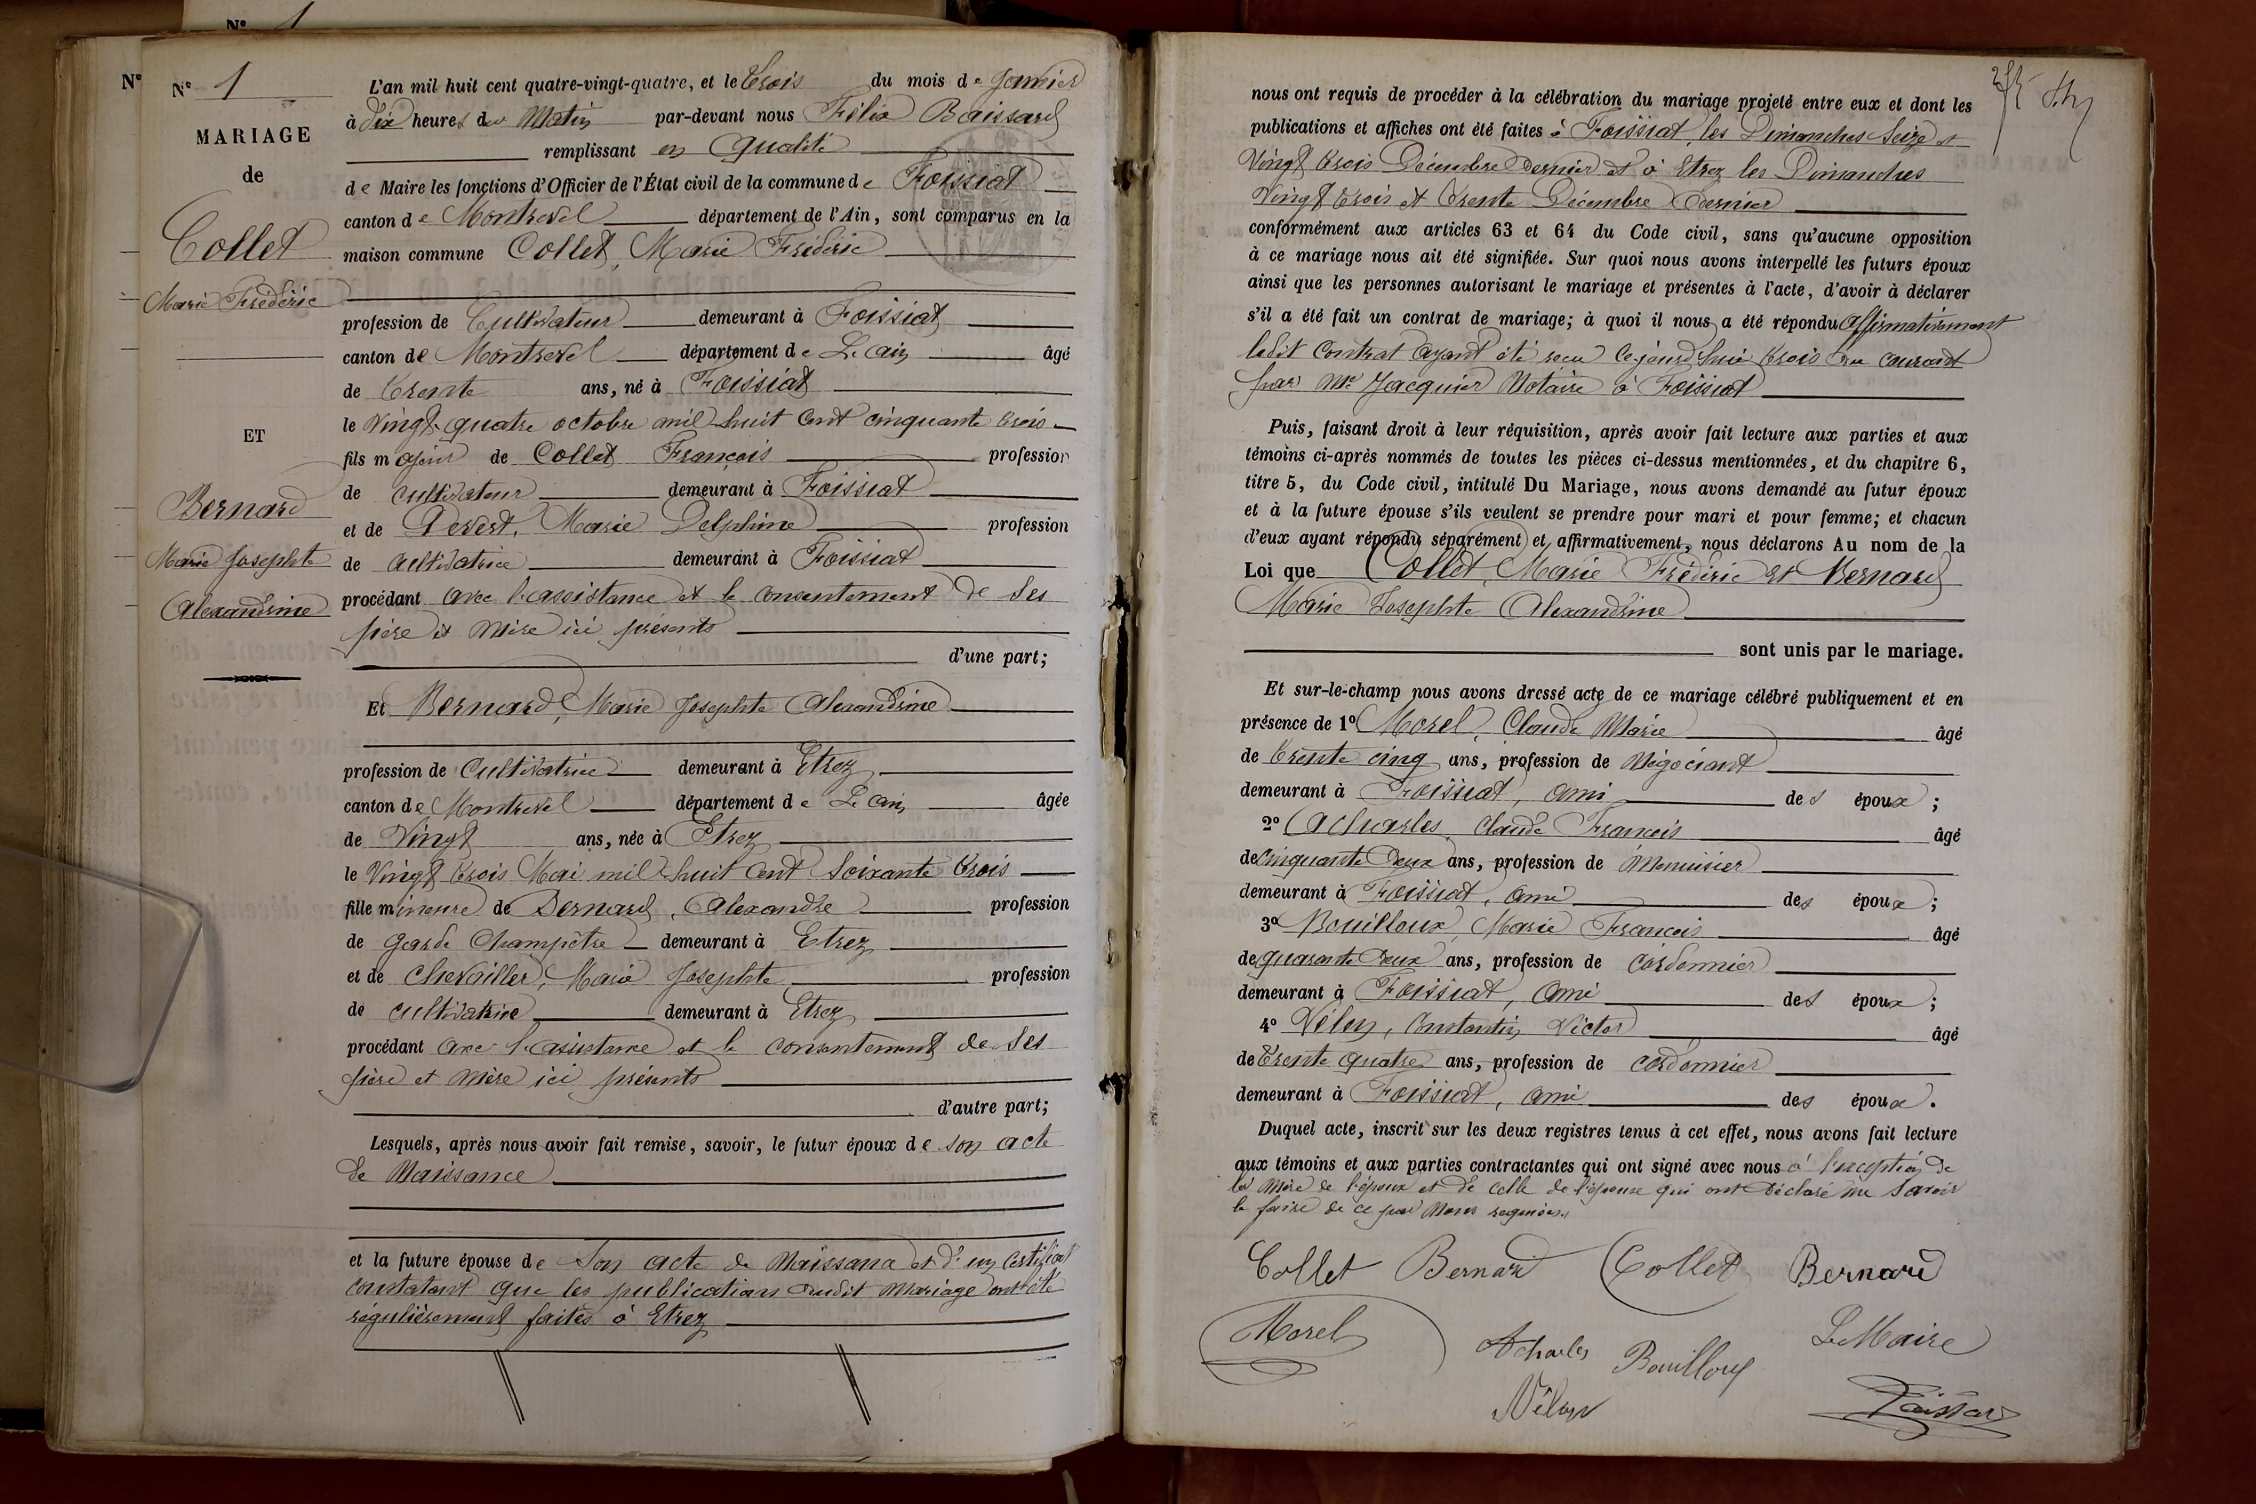 N° 1
N°
N° 1
MARIAGE
de
Collet
Marie Frédéric
ET
Bernard
Marie Josephte
Alexandrine
L'an mil huit cent quatre-vingt-quatre, et le trois du mois de Janvier
à dix heures du Matin par-devant nous Félix Baissard
remplissant en qualité
de Maire les fonctions d'Officier de l'État civil de la commune de Foissiat
canton de Montrevel département de l'Ain, sont comparus en la
maison commune Collet, Marie Frédéric
profession de Cultivateur demeurant à Foissiat
canton de Montrevel département de L'ain âgé
de trente ans, né à Foissiat
le Vingt-quatre octobre mil huit cent cinquante trois
fils majeur de Collet François profession
de cultivateur demeurant à Foissiat
et de Devert, Marie Delphine profession
de cultivatrice demeurant à Foissiat
procédant avec l'assistance et le consentement de ses
père et mère ici présents
d'une part;
Et Bernard, Marie Josephte Alexandrine
profession de Cultivatrice demeurant à Etrez
canton de Montrevel département de L'ain âgée
de Vingt ans, née à Etrez
le Vingt trois Mai mil huit cent Soixante trois
fille mineure de Bernard, Alexandre profession
de garde Champêtre demeurant à Etrez
et de Chevailler, Marie Josephte profession
de cultivatrice demeurant à Etrez
procédant avec l'assistance et le consentement de ses
père et mère ici présents
d'autre part;
Lesquels, après nous avoir fait remise, savoir, le futur époux de son acte
de Naissance
et la future épouse de son acte de Naissance et d'un Certificat
constatant que les publications dudit Mariage ont été
régulièrement faites à Etrez
nous ont requis de procéder à la célébration du mariage projeté entre eux et dont les
publications et affiches ont été faites à Foissiat, les Dimanches Seize et
Vingt trois Décembre dernier et à Etrez les Dimanches
Vingt trois et trente Décembre dernier
conformément aux articles 63 et 64 du Code civil, sans qu'aucune opposition
à ce mariage nous ait été signifiée. Sur quoi nous avons interpellé les futurs époux
ainsi que les personnes autorisant le mariage et présentes à l'acte, d'avoir à déclarer
s'il a été fait un contrat de mariage; à quoi il nous a été répondu affirmativement
ledit contrat ayant été reçu ce jourd'hui trois du courant
par Me Jacquier Notaire à Foissiat
Puis, faisant droit à leur réquisition, après avoir fait lecture aux parties et aux
témoins ci-après nommés de toutes les pièces ci-dessus mentionnées, et du chapitre 6,
titre 5, du Code civil, intitulé Du Mariage, nous avons demandé au futur époux
et à la future épouse s'ils veulent se prendre pour mari et pour femme; et chacun
d'eux ayant répondu séparément et affirmativement, nous déclarons Au nom de la
Loi que Collet, Marie Frédéric et Bernard
Marie Josephte Alexandrine
sont unis par le mariage.
Et sur-le-champ nous avons dressé acte de ce mariage célébré publiquement et en
présence de 1° Morel, Claude Marie âgé
de trente cinq ans, profession de Négociant
demeurant à Foissiat, ami des époux;
2° Acharles, Claude François âgé
de cinquante deux ans, profession de Menuisier
demeurant à Foissiat, ami des époux;
3° Bouilloux, Marie François âgé
de quarante deux ans, profession de cordonnier
demeurant à Foissiat, ami des époux;
4° Vélon, Constantin Victor âgé
de trente quatre ans, profession de cordonnier
demeurant à Foissiat, ami des époux.
Duquel acte, inscrit sur les deux registres tenus à cet effet, nous avons fait lecture
aux témoins et aux parties contractantes qui ont signé avec nous à l'exception de
la mère de l'époux et de celle de l'épouse qui ont déclaré ne savoir
le faire de ce par Nous requises.
Collet Bernard Collet Bernard
Morel Acharles Bouilloux Le Maire
Vélon Baissard